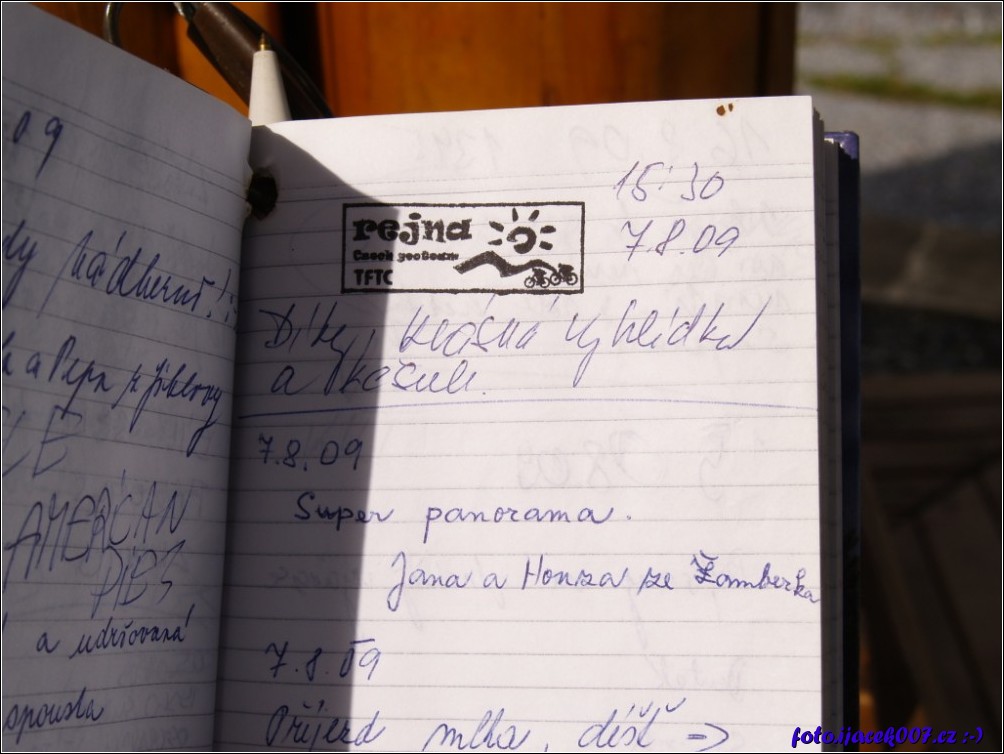 09
nádherné!
a Pepa z Jihlavy
AMERICAN
PIE3
a udržovaná
spousta
rejna
Czech geoteam
TFTC
15:30
7.8.09
Díky, krásná vyhlídka
a
7.8.09
Super panorama.
Jana a Honza ze Žamberka
7.8.09
Příjezd mlha, déšť →
foto.ijacek007.cz :-)